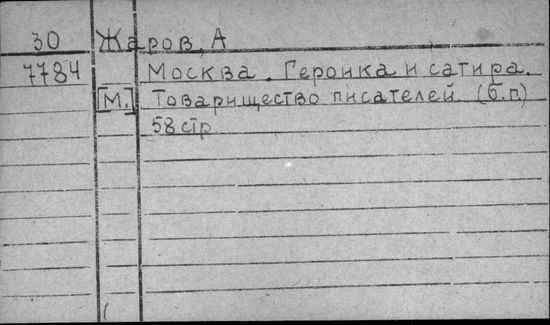 30 Жаров, А
7784 Москва. Героика и сатира.
[М.] Товарищество писателей (б.г.)
58 стр